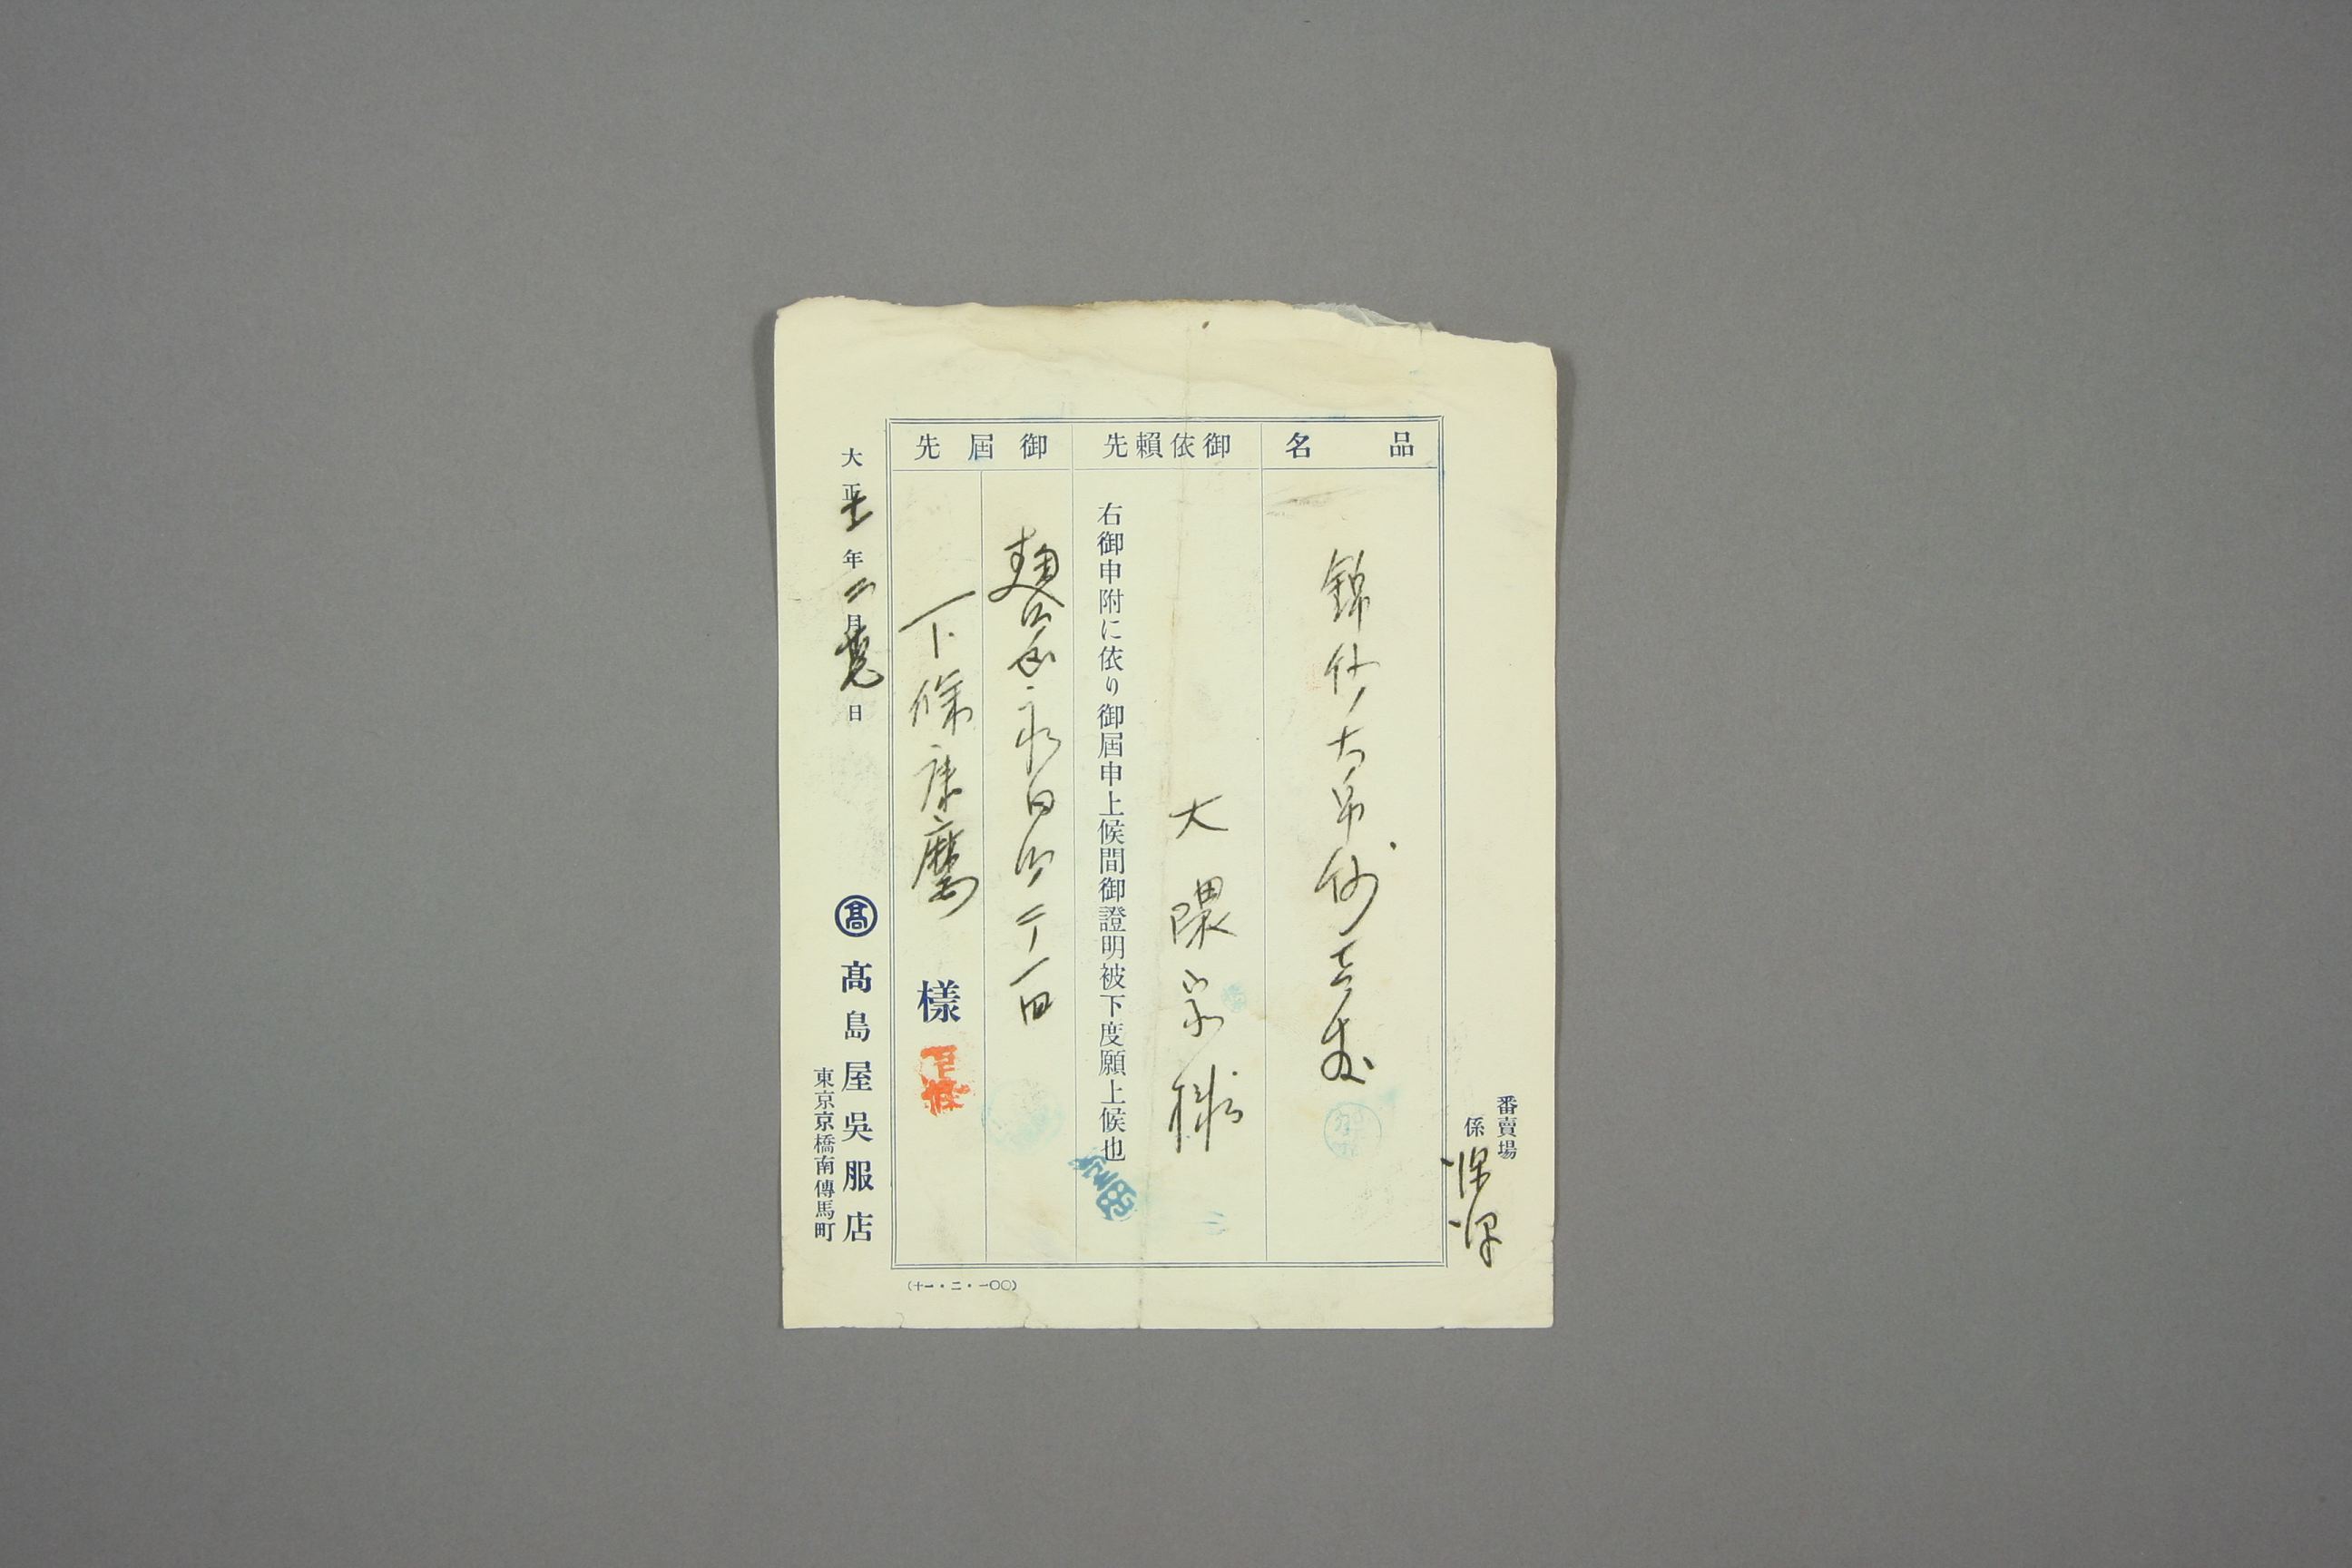 番賣場
係
品名
錦紗大帛紗壱枚
御依賴先
大隈家様
右御申附に依り御屆申上候間御證明被下度願上候也
御屆先
麹町区永田町二ノ一四
下條康麿
樣
大正十一年二月 日
髙 髙島屋吳服店
東京京橋南傳馬町
(十一・二・一〇〇)